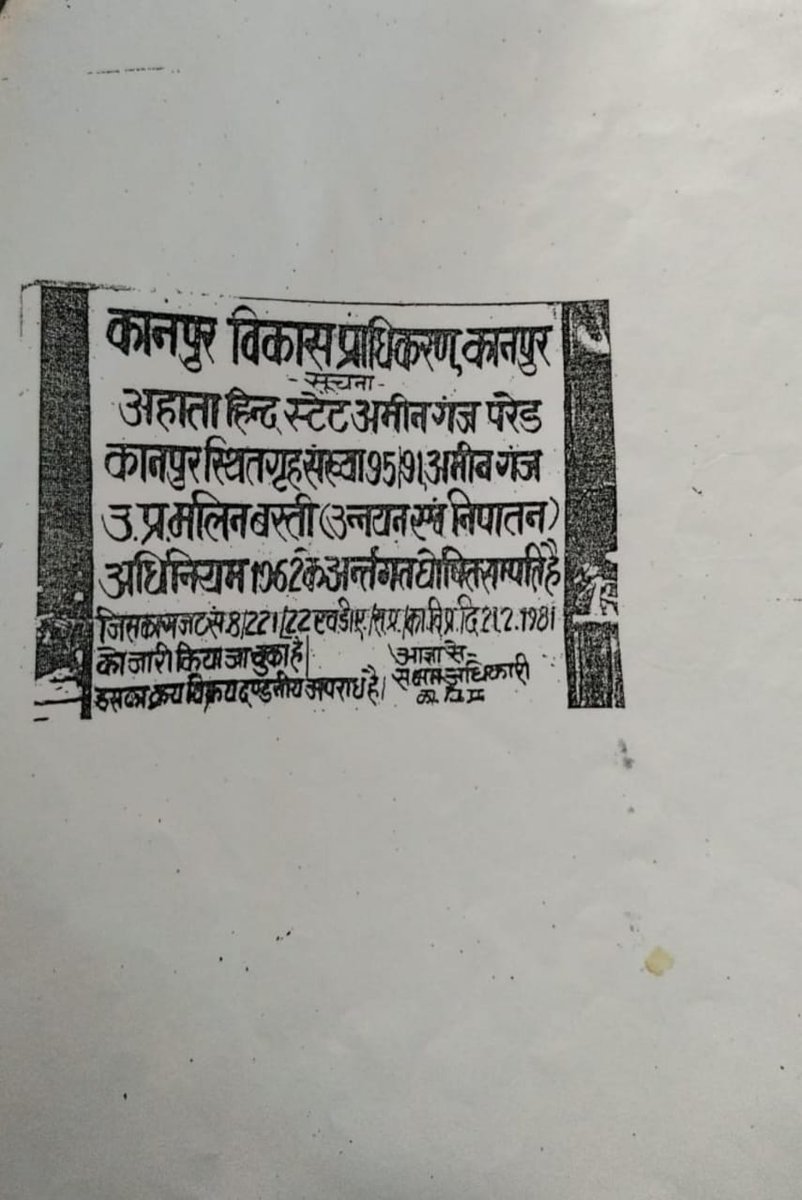 कानपुर विकास प्राधिकरण, कानपुर
-सूचना-
अहाता हिन्द स्टेट अमीन गंज परेड
कानपुर स्थित गृह संख्या 95/91, अमीन गंज
उ.प्र.मलिन बस्ती (उन्नयन एवं निपातन)
अधिनियम 1962 के अर्न्तगत घोषित सम्पति है
जिसका गजट सं.8/221/22 /स.प्र./का.वि.प्र.दि 21.2.1981
को जारी किया जा चुका है।
आज्ञा से-
इसका क्रय विक्रय दण्डनीय अपराध है।
सक्षम अधिकारी
का वि प्र